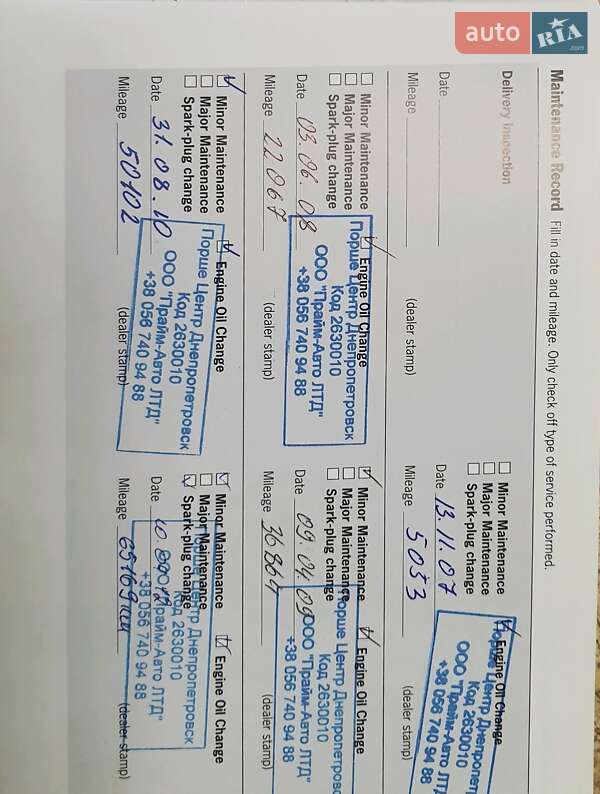 auto RIA.com
Maintenance Record Fill in date and mileage. Only check off type of service performed.
Delivery Inspection
Date
Mileage
(dealer stamp)
Minor Maintenance
Major Maintenance
Spark-plug change
Engine Oil Change
Date 13.11.07
Mileage 5033
Порше Центр Днепропет
Код 2630010
ООО "Прайм-Авто ЛТ
+38 056 740 94 88
(dealer stamp)
Minor Maintenance
Major Maintenance
Spark-plug change
Engine Oil Change
Date 03.06.08
Mileage 22067
Порше Центр Днепропетровск
Код 2630010
ООО "Прайм-Авто ЛТД"
+38 056 740 94 88
(dealer stamp)
Minor Maintenance
Major Maintenance
Spark-plug change
Engine Oil Change
Date 09.04.09
Mileage 36864
Порше Центр Днепропетровск
Код 2630010
ООО "Прайм-Авто ЛТД"
+38 056 740 94 88
(dealer stamp)
Minor Maintenance
Major Maintenance
Spark-plug change
Engine Oil Change
Date 31.08.10
Mileage 50102
Порше Центр Днепропетровск
Код 2630010
ООО "Прайм-Авто ЛТД"
+38 056 740 94 88
(dealer stamp)
Minor Maintenance
Major Maintenance
Spark-plug change
Engine Oil Change
Date
Mileage 65169
Центр Днепропетровск
Код 2630010
ООО "Прайм-Авто ЛТД"
+38 056 740 94 88
(dealer stamp)